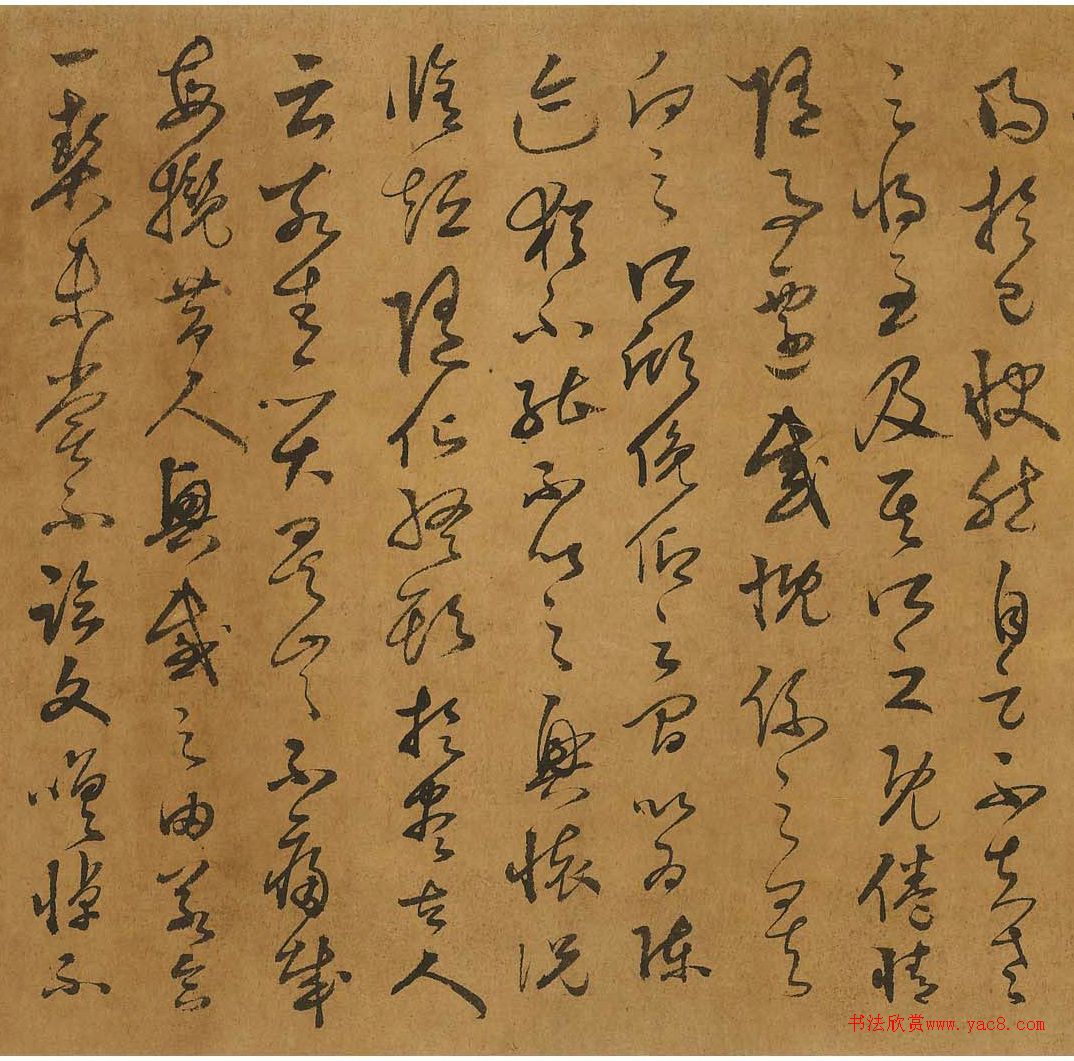 得於己快然自足不知老
之將至及其所之既倦情
隨事遷感慨係之矣
向之所欣俛仰之間以為陳
迹猶不能不以之興懷況
脩短隨化終期於盡古人
云死生亦大矣豈不痛哉
每攬昔人興感之由若合
一契未嘗不臨文嗟悼不
书法欣赏www.yac8.com